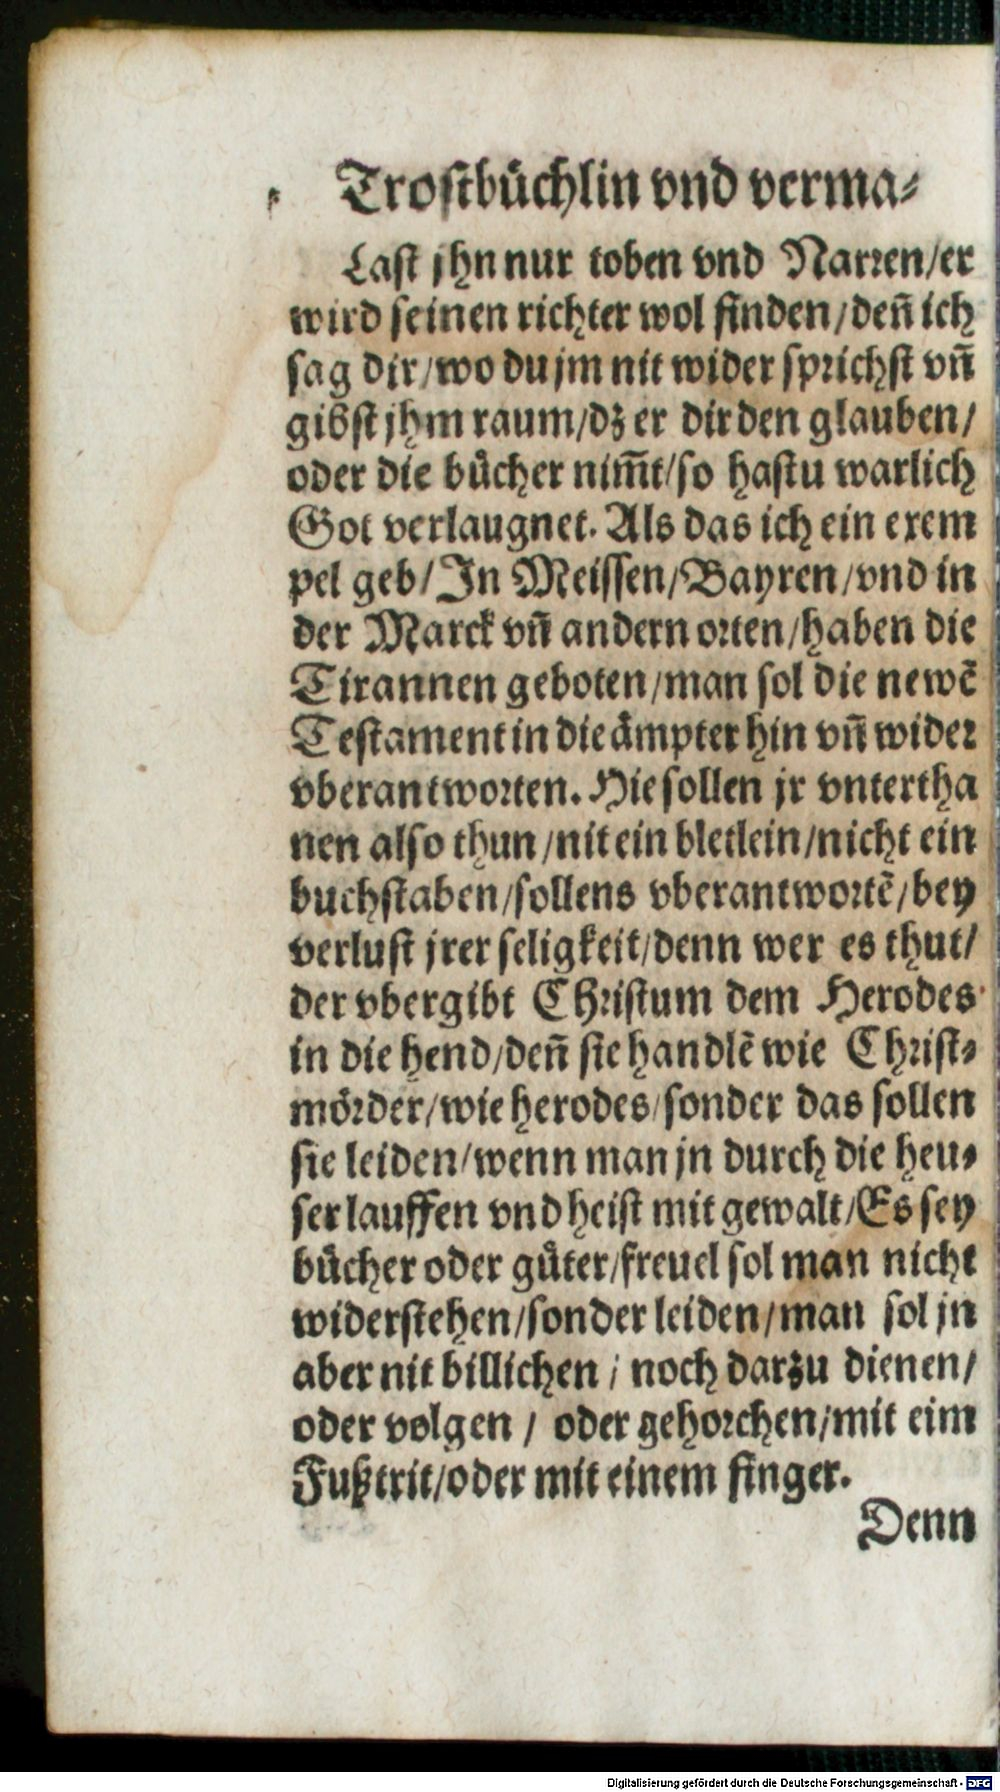 Trostbuͤchlin vnd verma⸗
Last jhn nur toben vnd Narren/er
wird seinen richter wol finden/deñ ich
sag dir/wo du jm nit wider sprichst vñ
gibst jhm raum/dz er dir den glauben/
oder die buͤcher nim̃t/so hastu warlich
Got verlaugnet. Als das ich ein exem
pel geb/In Meissen/Bayren/vnd in
der Marck vñ andern orten/haben die
Tirannen geboten/man sol die newẽ
Testament in die aͤmpter hin vñ wider
vberantworten. Hie sollen jr vntertha
nen also thun/nit ein bletlein/nicht ein
buchstaben/sollens vberantwortẽ/bey
verlust jrer seligkeit/denn wer es thut/
der vbergibt Christum dem Herodes
in die hend/deñ sie handlẽ wie Christ⸗
moͤrder/wie herodes/sonder das sollen
sie leiden/wenn man jn durch die heu⸗
ser lauffen vnd heist mit gewalt/Es sey
buͤcher oder guͤter/freuel sol man nicht
widerstehen/sonder leiden/man sol jn
aber nit billichen / noch darzu dienen/
oder volgen / oder gehorchen/mit eim
Fußtrit/oder mit einem finger.
Denn
Digitalisierung gefördert durch die Deutsche Forschungsgemeinschaft - DFG